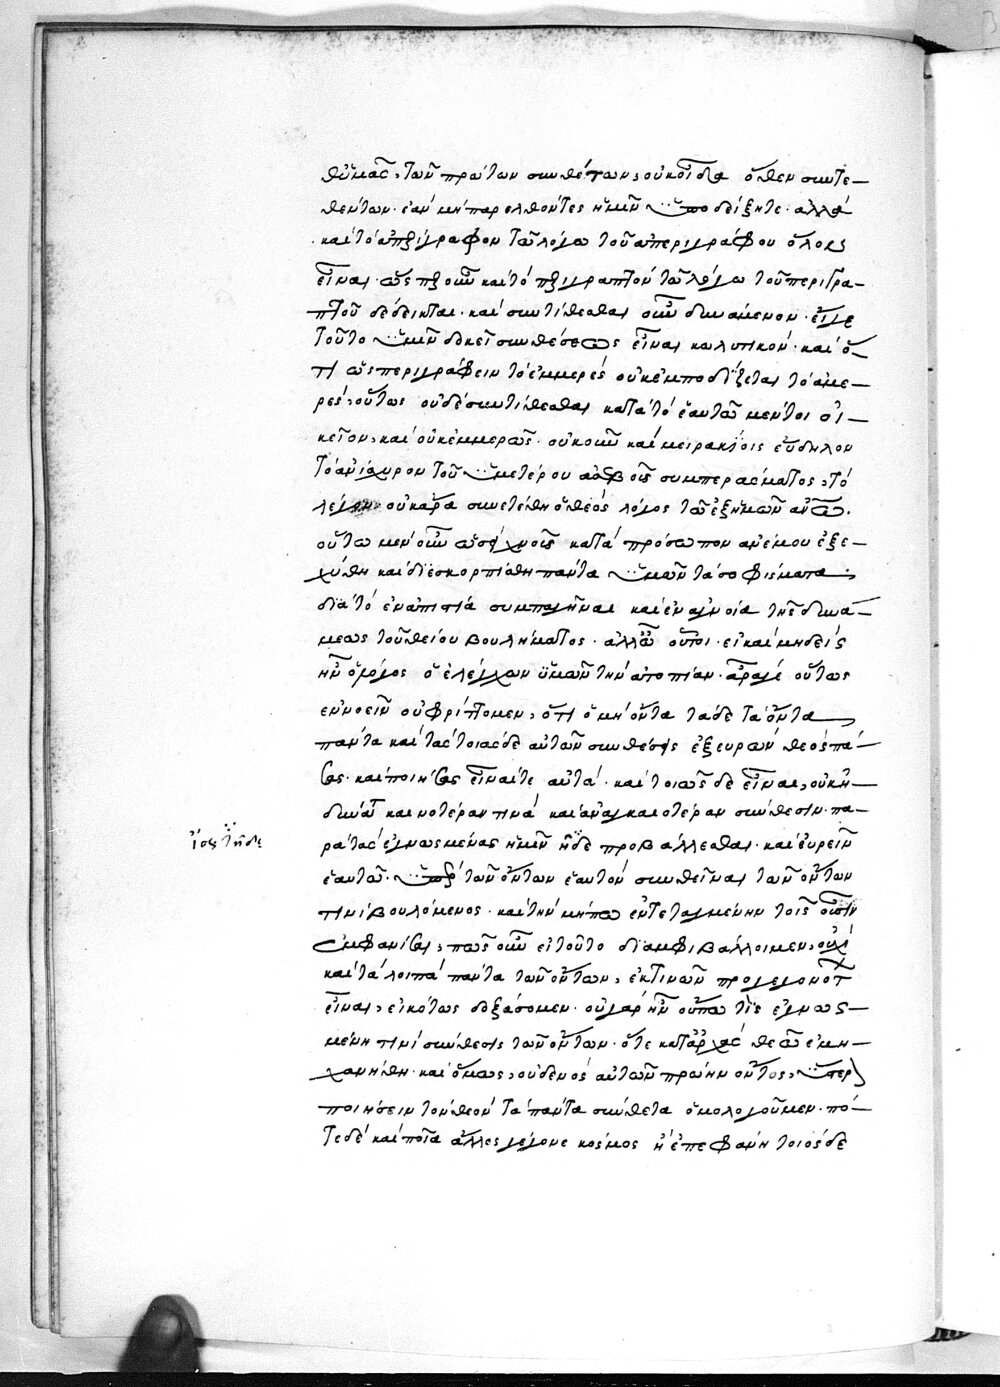 θ' ὑμᾶς, τῶν πρώτων συνθέτων, οὐκ οἶδα ὅθεν συντε-
θέντων. ἐὰν μὴ παρελθόντες ἡμῖν ὑποδείξητε. ἀλλὰ
καὶ τὸ ἀπερίγραφον τῷ λόγῳ τοῦ ἀπεριγράφου ὅλοις
εἶναι. ὡς περ οὖν καὶ τὸ περιγραπτὸν τῷ λόγῳ τοῦ περιγρα-
πτοῦ δέδεικται. καὶ συντίθεσθαι οὖν δυνάμενον. εἴγε
τοῦτο ὑμῖν δοκεῖ συνθέσεως εἶναι κωλυτικόν. καὶ ὅ-
τι ὡς περιγράφειν τὸ ἐμμερὲς οὐκ ἐμποδίζεται τὸ ἀμε-
ρές, οὕτως οὐδὲ συντίθεσθαι κατὰ τὸ ἑαυτῷ μέντοι οἰ-
κεῖον, καὶ οὐκ ἐμμερῶς. οὐκοῦν καὶ μειρακίοις εὔδηλον
τὸ ἀνίσχυρον τοῦ ὑμετέρου συμπεράσματος, τὸ
λέγον οὐκ ἄρα συνετέθη ὁ θεὸς λόγος τῷ ἐξ ἡμῶν
οὕτω μὲν οὖν ὡσεὶ χνοῦς κατὰ πρόσωπον ἀνέμου ἐξε-
χύθη καὶ διεσκορπίσθη πάντα ὑμῶν τὰ σοφίσματα,
διὰ τὸ ἐν ἀπιστίᾳ συμπαγῆναι καὶ ἐν ἀγνοίᾳ τῆς δυνά-
μεως τοῦ θείου βουλήματος. ἀλλ' ὦ οὗτοι. εἰ καὶ μηδεὶς
ἦν ὁ λόγος ὁ ἐλέγχων ὑμῶν τὴν ἀτοπίαν. ἆρά γε οὕτως
ἐννοεῖν οὐ φρίττομεν, ὅτι ὁ μὴ ὄντα τάδε τὰ ὄντα
πάντα καὶ τὰς τοιάσδε αὐτῶν συνθέσεις ἐξευρὼν θεὸς πά-
σας. καὶ ποιήσας εἶναί τε αὐτὰ. καὶ τοιῶσδε εἶναι, οὐκ ἠ-
δύνατο καινοτέραν τινὰ καὶ ἀναγκαιοτέραν σύνθεσιν. πα-
ρὰ τὰς ἐγνωσμένας ἡμῖν ἤδη προβάλλεσθαι. καὶ εὑρεῖν
ἑαυτῷ. ὑπὲρ τῶν ὄντων ἑαυτὸν συνθεῖναι τῶν ὄντων
τινὶ βουλόμενος. καὶ τὴν μήπω ἐντεταγμένην τοῖς οὖσιν
ἐμφανίσαι, πῶς οὖν εἰ τοῦτο διαμφιβάλλοιμεν, οὐχὶ
καὶ τὰ λοιπὰ πάντα τῶν ὄντων, ἐκ τινῶν προγεγονότ
εἶναι, εἰκότως δοξάσομεν. οὐ γὰρ ἦν οὔπω τις ἐγνωσ-
μένη τινὶ σύνθεσις τῶν ὄντων. ὅτε κατ' ἀρχὰς θεῷ ἐμη-
χανήθη. καὶ ὅμως, οὐδενὸς αὐτῶν πρώην ὄντος, ὑπερ
ποιήσειν τὸν θεὸν τὰ πάντα σύνθετα ὁμολογοῦμεν. πό-
τε δὲ καὶ ποῖα ἄλλος γέγονε κόσμος ἢ ἐπεφάνη τοιόσδε
ἴσως τῇδε